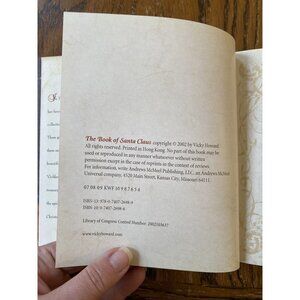 The Book of Santa Claus copyright © 2002 by Vicky Howard.
All rights reserved. Printed in Hong Kong. No part of this book may be
used or reproduced in any manner whatsoever without written
permission except in the case of reprints in the context of reviews.
For information, write Andrews McMeel Publishing, LLC, an Andrews McMeel
Universal company, 4520 Main Street, Kansas City, Missouri 64111.
07 08 09 KWF 10 9 8 7 6 5 4
ISBN-13: 978-0-7407-2698-9
ISBN-10: 0-7407-2698-4
Library of Congress Control Number:
www.vickyhoward.com